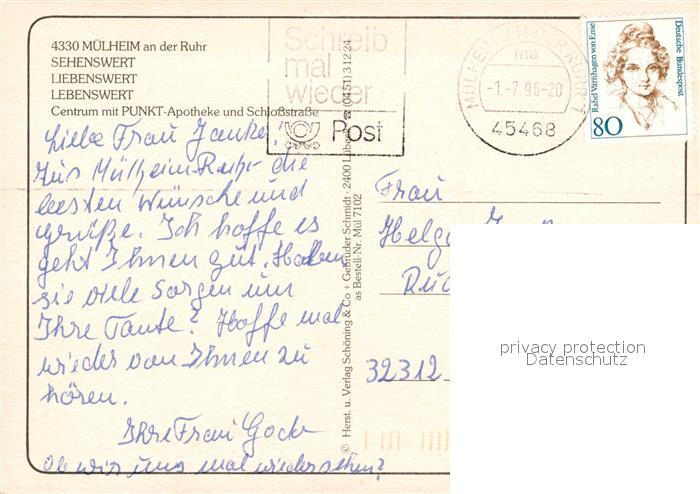 4330 MÜLHEIM an der Ruhr
SEHENSWERT
LIEBENSWERT
LEBENSWERT
Centrum mit PUNKT-Apotheke und Schloßstraße
Schreib
mal
wieder
Post
MÜLHEIM AN DER RUHR 1
ma
-1.-7.96-20
45468
Deutsche Bundespost
Rahel Varnhagen von Ense
80
Liebe Frau Janke,
Aus Mülheim-Ruhr die
besten Wünsche und
grüße. Ich hoffe es
geht Ihnen gut. Haben
sie viele Sorgen um
Ihre Tante? Hoffe mal
wieder von Ihnen zu
hören.
Ihre Frau
Ob wir uns mal wiedersehen?
© Herst. u. Verlag Schöning & Co + Gebrüder Schmidt · 2400 Lübeck · ☎ (0451) 31224
as Bestell-Nr. Mül 7102
Frau
Helga
32312
privacy protection
Datenschutz